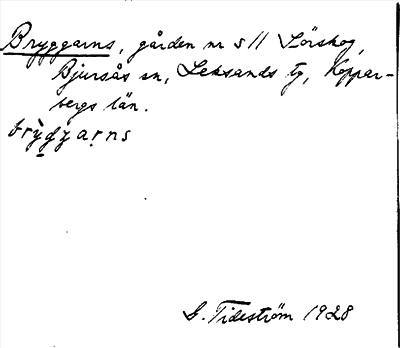 Bryggarns, gården nr 511 Lörskog,
Bjursås sn, Leksands tg, Koppar-
bergs län.
G. Tideström 1928